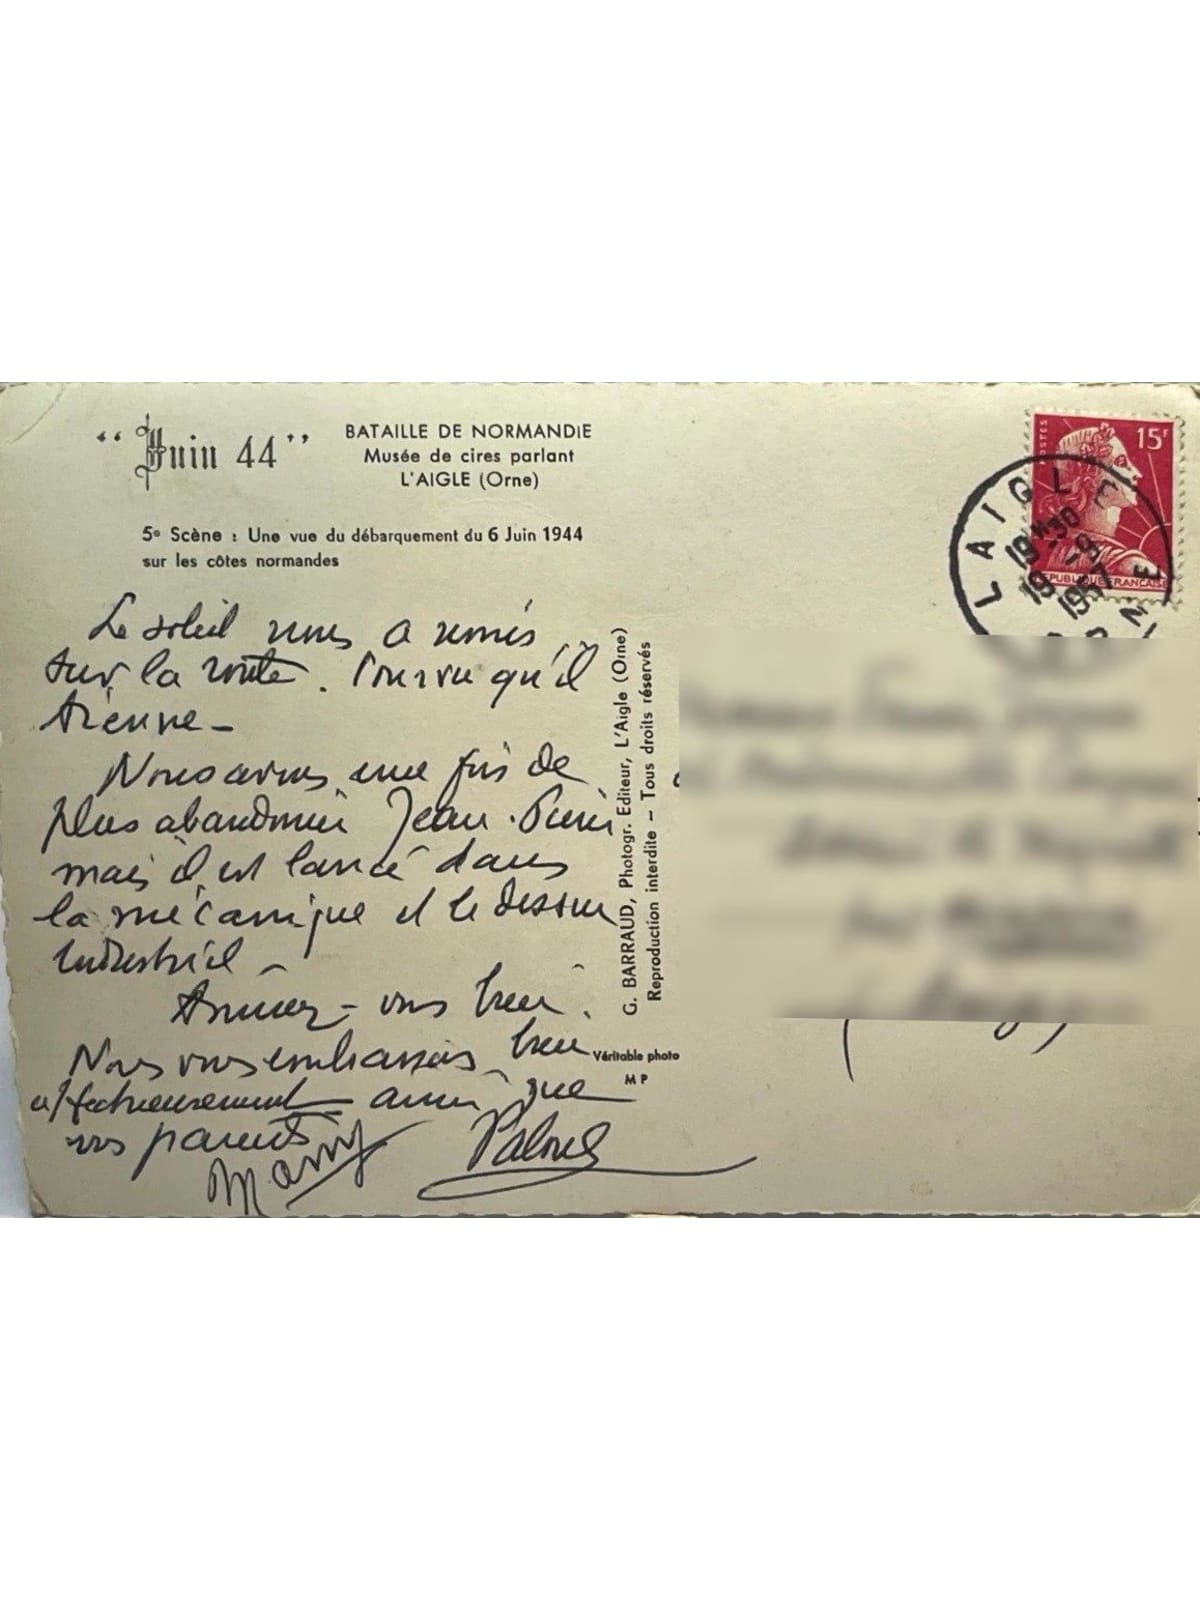 “ Juin 44 ”
BATAILLE DE NORMANDIE
Musée de cires parlant
L'AIGLE (Orne)
5e Scène : Une vue du débarquement du 6 Juin 1944
sur les côtes normandes
Le soleil nous a remis
sur la route. Pourvu qu'il
tienne -
Nous avons une fois de
plus abandonné Jean-Pierre
mais il est lancé dans
la mécanique et le dessin
industriel -
Amusez-vous bien.
Nous vous embrassons bien
affectueusement ainsi que
vos parents
Mamy
G. BARRAUD, Photogr. Editeur, L'Aigle (Orne)
Reproduction interdite - Tous droits réservés
Véritable photo
M P
POSTES
15F
REPUBLIQUE FRANÇAISE
L'AIGLE
19H30
19-9
1957
ORNE